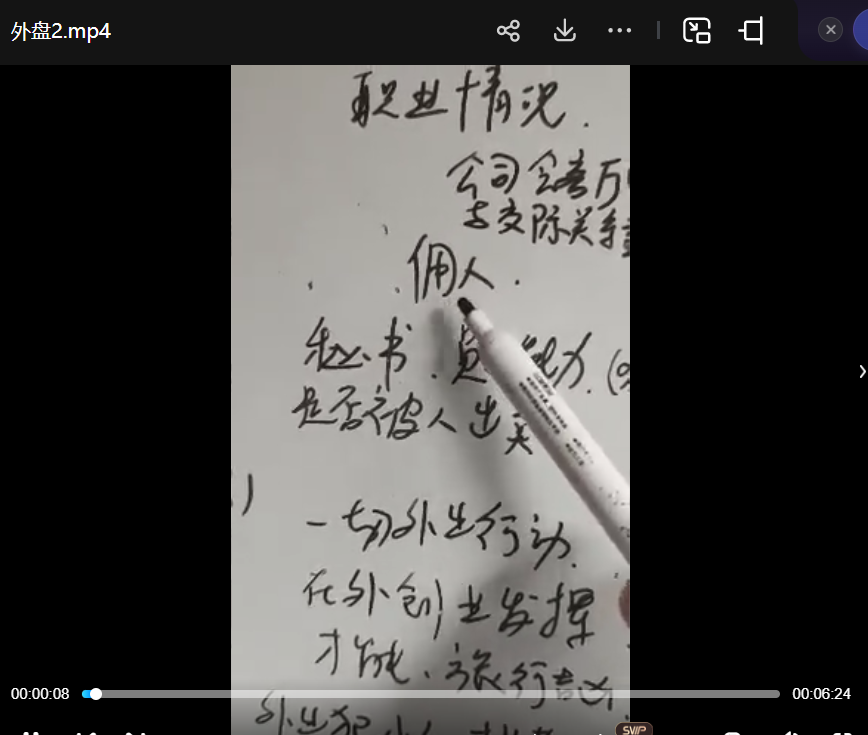 外盘2.mp4
职业情况.
公司会
与交际关
佣人.
秘书.
是否被人出卖
一切外出行动.
在外创业发挥
才能、旅行吉凶
00:00:08
00:06:24
SVIP